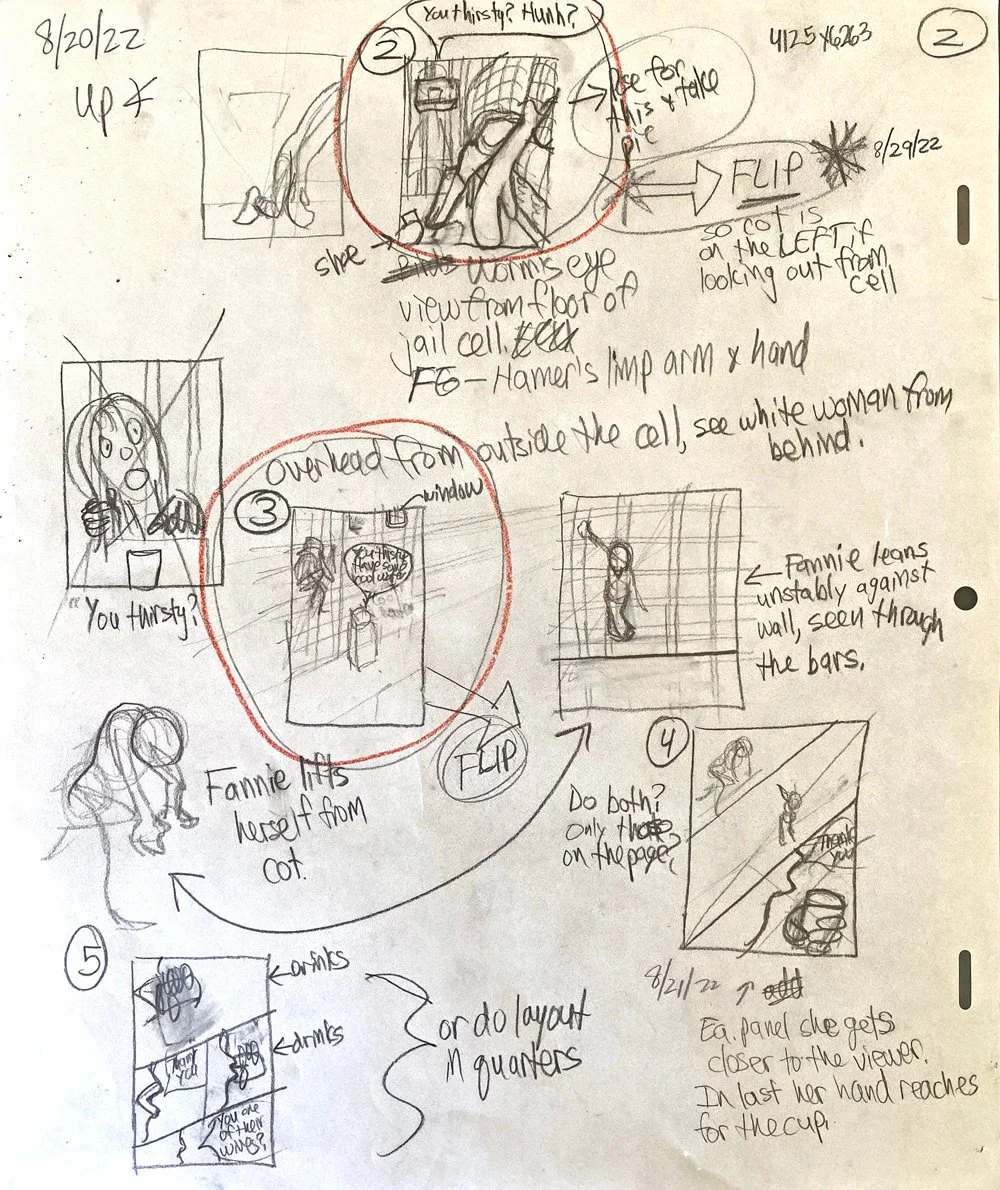 8/20/22
Up
You thirsty? Hunh?
2
4125 x 6263
2
Pose for
this & take
pic
FLIP
8/29/22
so cot is
on the LEFT, if
looking out from
cell
shoe
Worm's eye
view from floor of
jail cell.
FG - Hamer's limp arm & hand
Overhead from outside the cell, see white woman from
behind.
window
3
You thirsty?
Have some
cool water
"You thirsty?
Fannie leans
unstably against
wall, seen through
the bars.
FLIP
4
Fannie lifts
herself from
cot.
Do both?
Only
on the page?
Thank
you
5
drinks
drinks
or do layout
in quarters
Thank
you
You one
of their
wives?
8/21/22
add
Ea. panel she gets
closer to the viewer.
In last her hand reaches
for the cup.